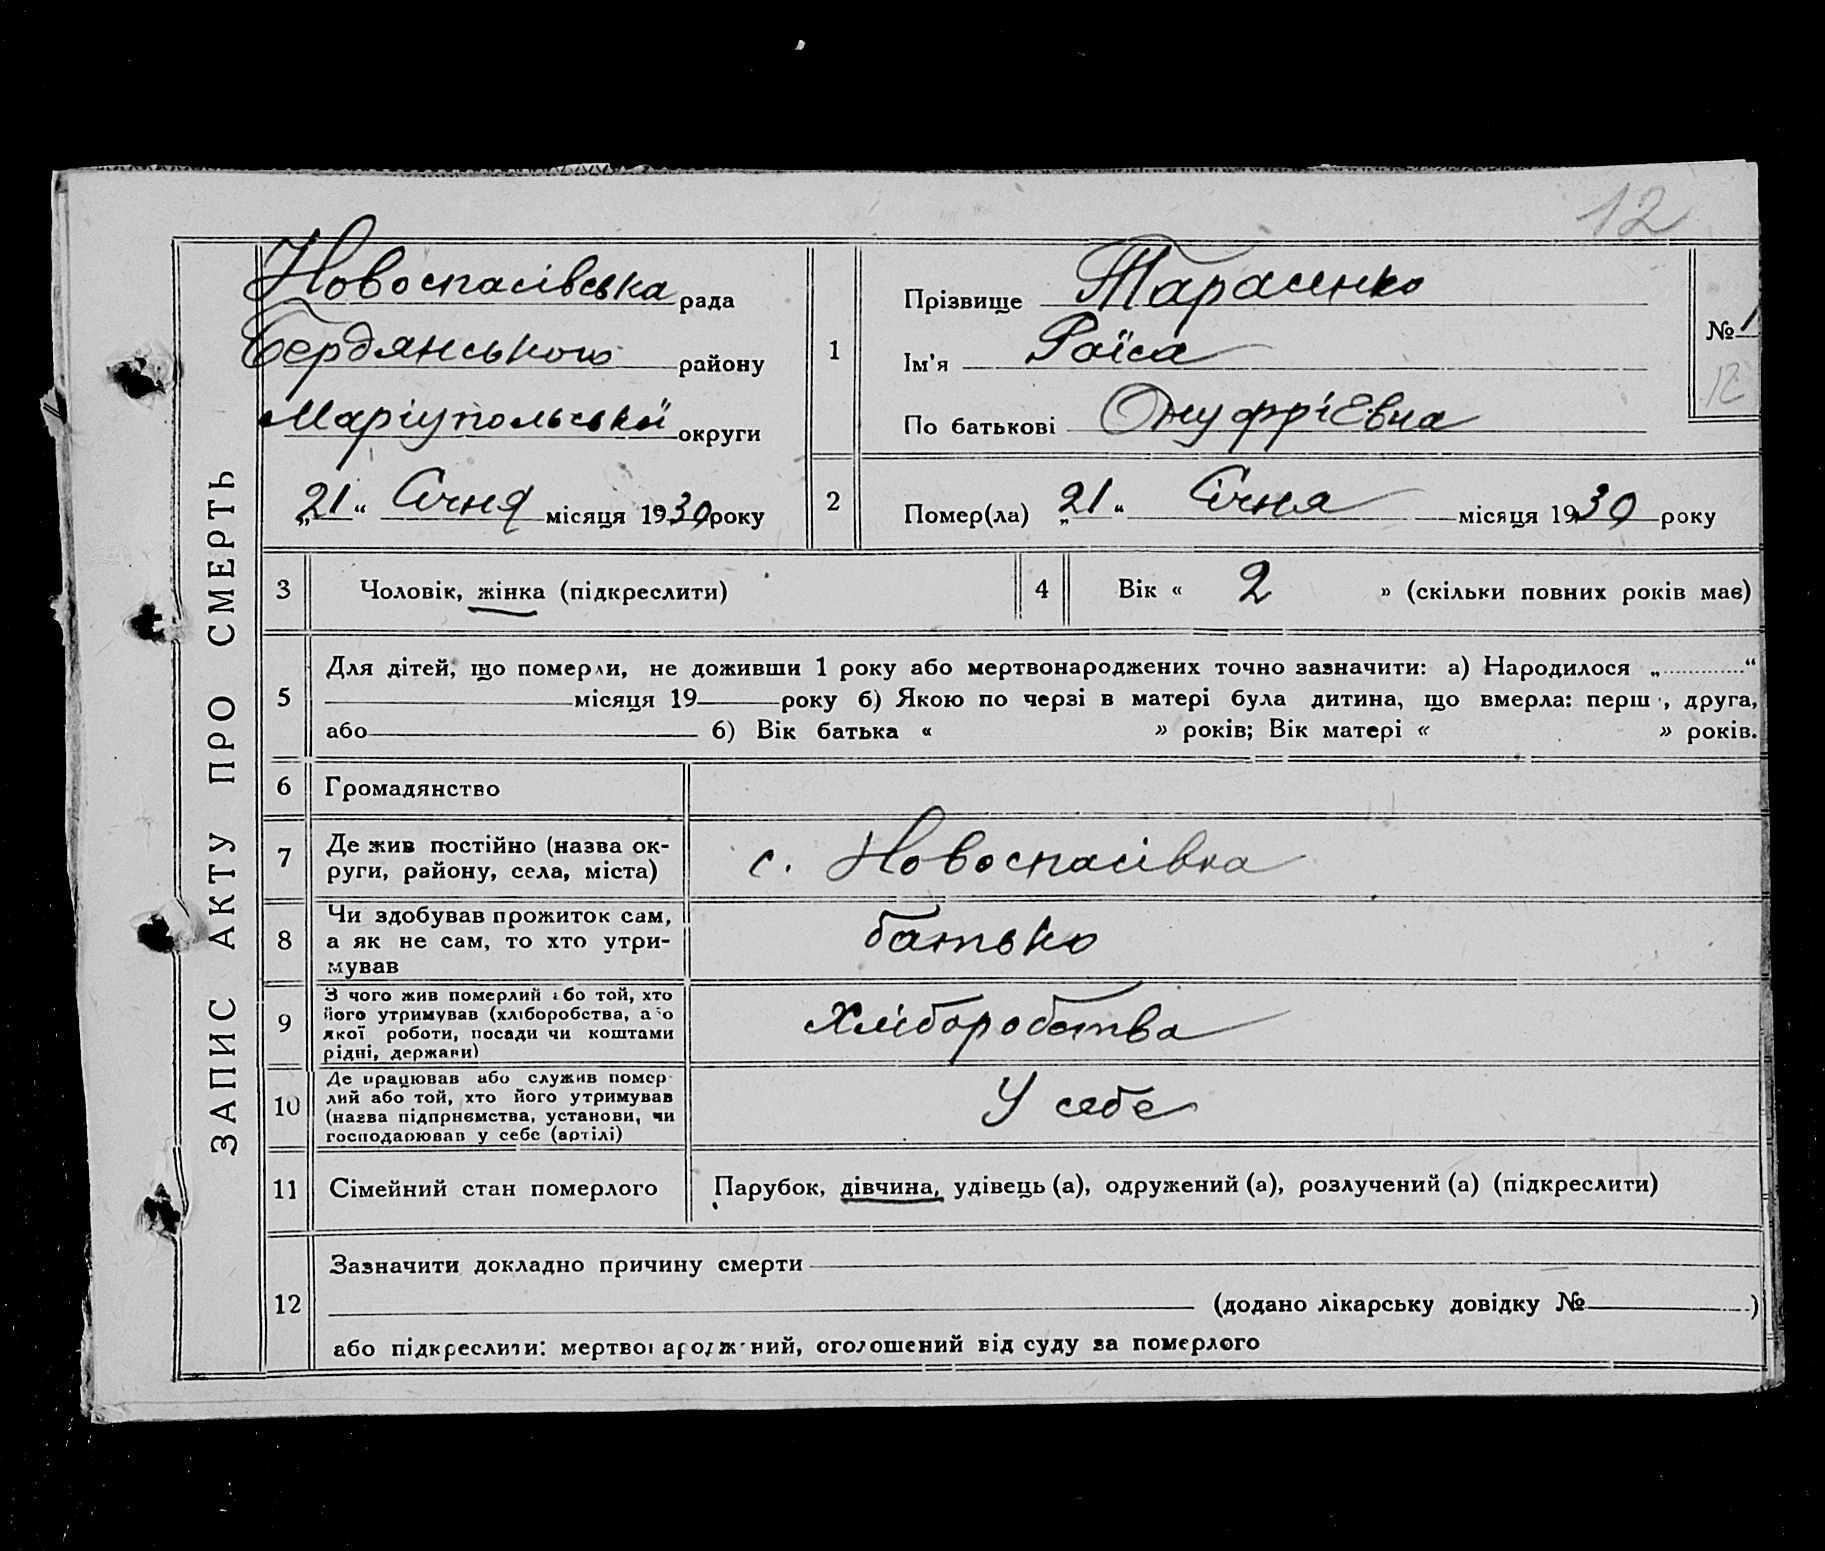 12
Новоспасівська рада
Бердянського району
Маріупольської округи
„21“ Січня місяця 1930 року
ЗАПИС АКТУ ПРО СМЕРТЬ
1
Прізвище Тарасенко
Ім'я Раїса
По батькові Онуфріевна
№ 1
12
2
Помер(ла) „21“ Січня місяця 1930 року
3 Чоловік, жінка (підкреслити)
4 Вік « 2 » (скільки повних років має)
5
Для дітей, що померли, не доживши 1 року або мертвонароджених точно зазначити: а) Народилося „ “
місяця 19 року б) Якою по черзі в матері була дитина, що вмерла: перш , друга,
або б) Вік батька « » років; Вік матері « » років.
6 Громадянство
7
Де жив постійно (назва ок-
руги, району, села, міста)
с. Новоспасівка
8
Чи здобував прожиток сам,
а як не сам, то хто утри-
мував
батько
9
З чого жив померлий або той, хто
його утримував (хліборобства, або
якої роботи, посади чи коштами
рідні, держави)
Хліборобства
10
Де працював або служив помер-
лий або той, хто його утримував
(назва підприємства, установи, чи
господарював у себе (артілі)
У себе
11 Сімейний стан померлого
Парубок, дівчина, удівець (а), одружений (а), розлучений (а) (підкреслити)
12
Зазначити докладно причину смерти
(додано лікарську довідку № )
або підкреслити: мертвонароджений, оголошений від суду за померлого